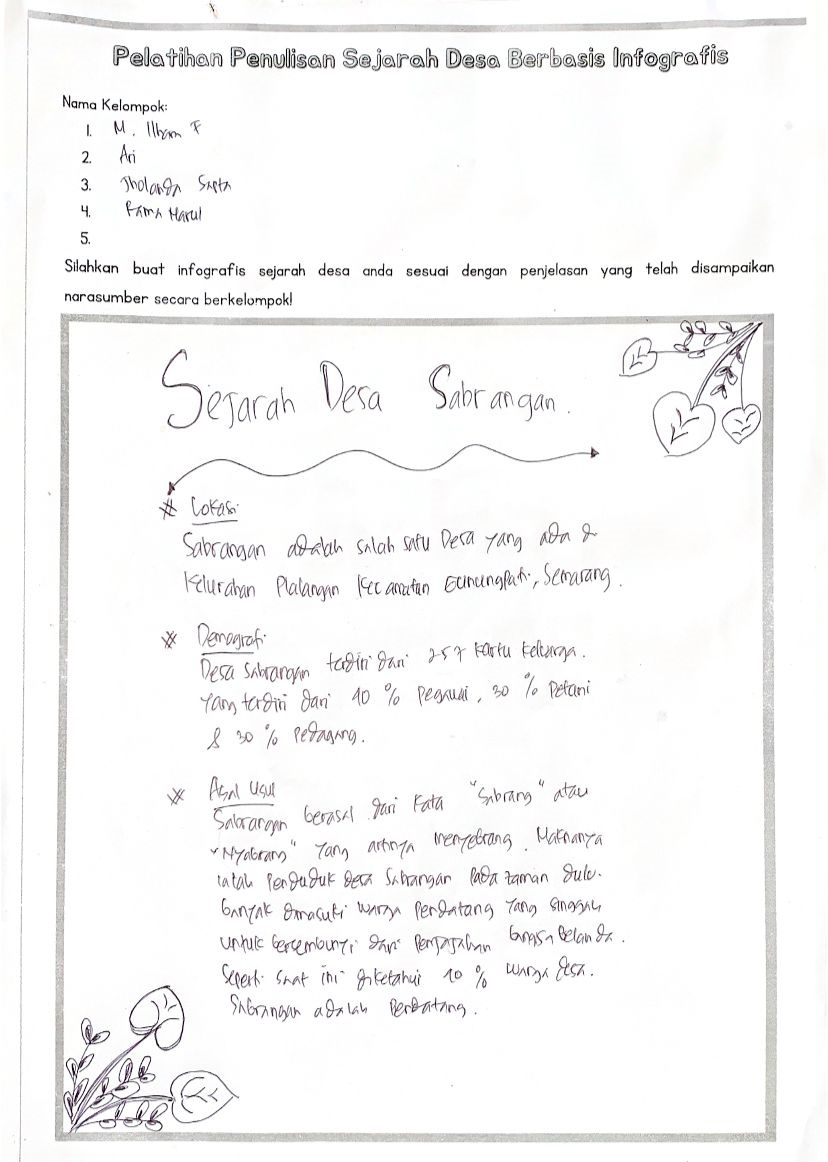 Pelatihan Penulisan Sejarah Desa Berbasis Infografis
Nama Kelompok:
1. M. Ilham F
2. Ari
3. Jholanda Sapta
4. Rama Harul
5.
Silahkan buat infografis sejarah desa anda sesuai dengan penjelasan yang telah disampaikan
narasumber secara berkelompok!
Sejarah Desa Sabrangan.
# Lokasi
Sabrangan adalah salah satu Desa yang ada di
Kelurahan Plalangan Kecamatan Gunungpati, Semarang.
# Demografi
Desa Sabrangan terdiri dari 257 kartu keluarga.
yang terdiri dari 40 % Pegawai, 30 % Petani
& 30 % Pedagang.
# Asal Usul
Sabrangan berasal dari kata "Sabrang" atau
"Nyabrang" yang artinya menyebrang. Maknanya
ialah Penduduk desa Sabrangan Pada zaman dulu
banyak dimasuki warga Pendatang yang singgah
untuk bersembunyi dari Penjajahan bangsa Belanda.
Seperti saat ini diketahui 40 % warga desa
Sabrangan adalah Pendatang.